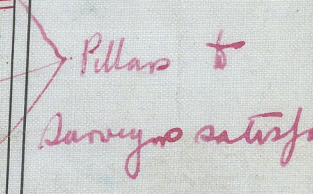 Pillars to
Surveyors satisfa